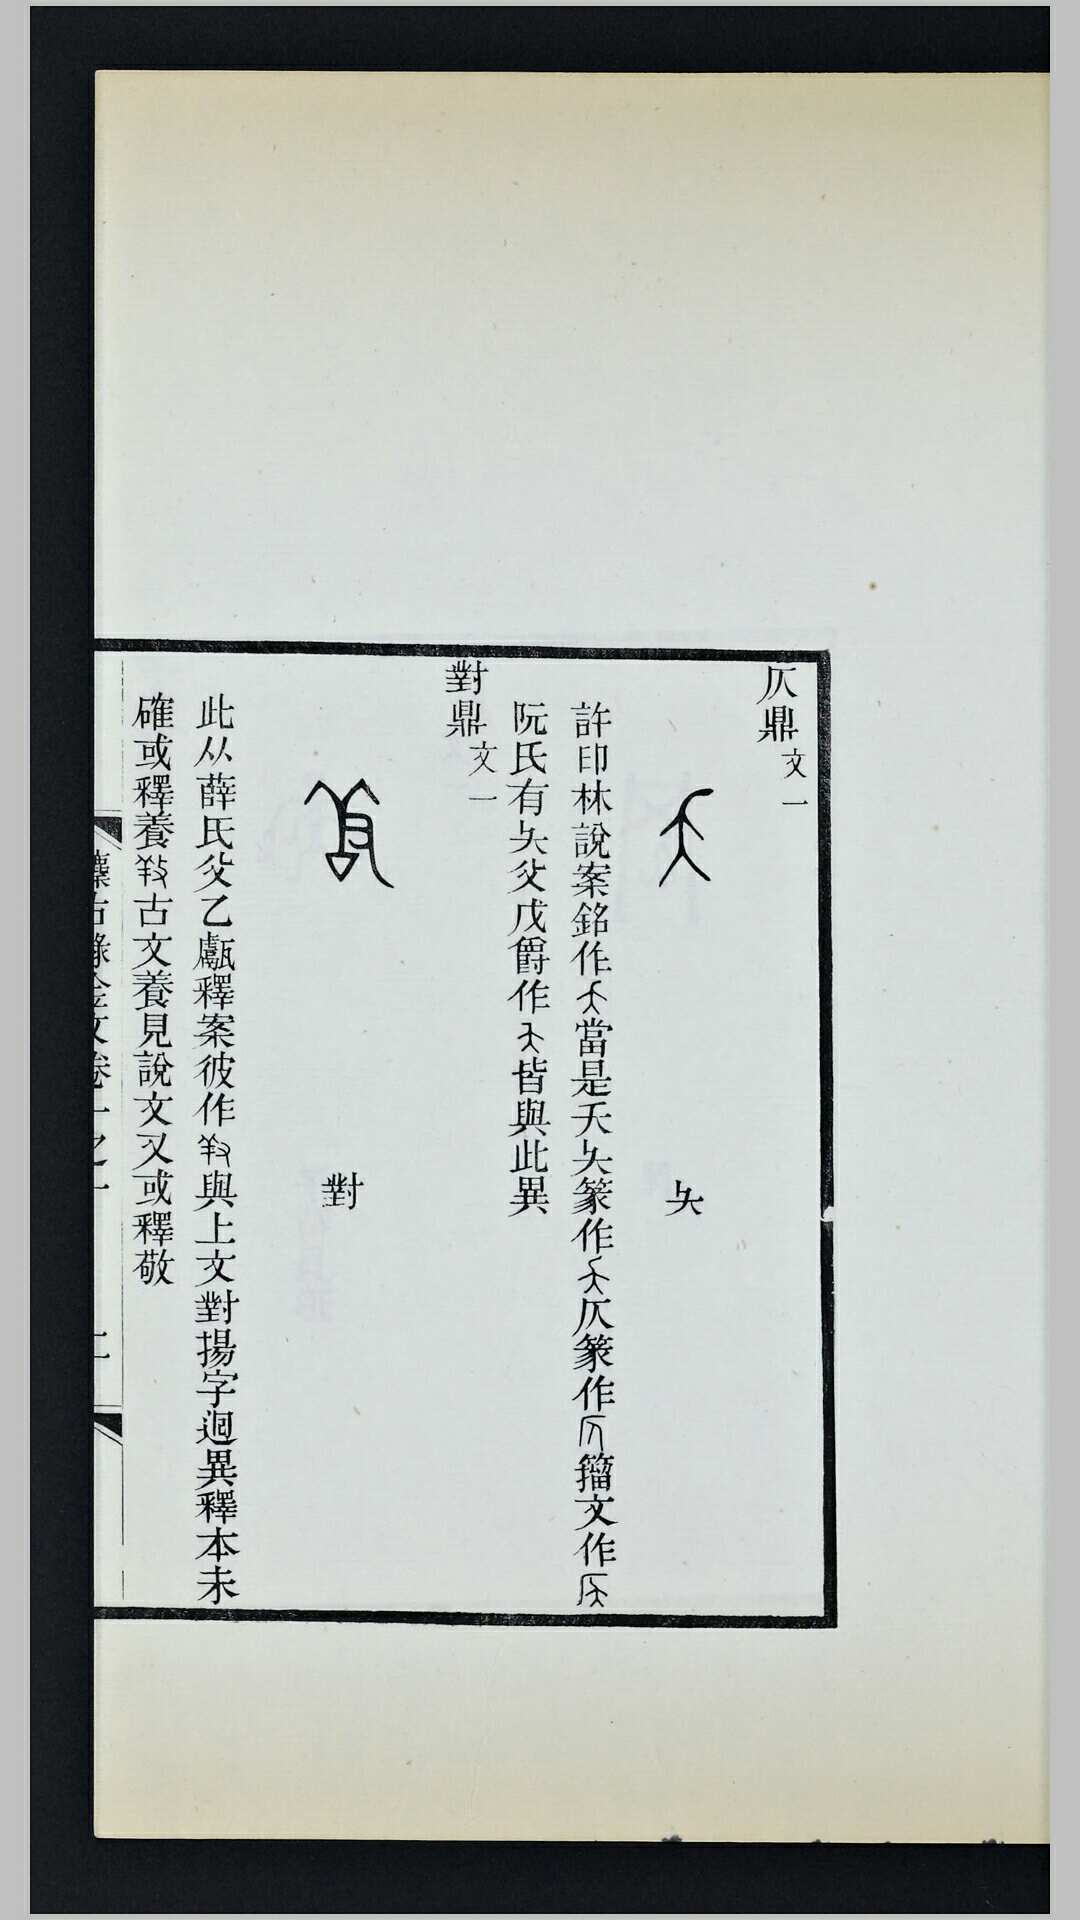 仄鼎 文一
夨
許印林說案銘作當是夭夨篆作仄篆作籒文作
阮氏有夨父戊爵作皆與此異
對鼎 文一
對
此从薛氏父乙甗釋案彼作與上文對揚字迥異釋本未
確或釋養古文養見說文又或釋敬
攈古錄金文卷一之一
二